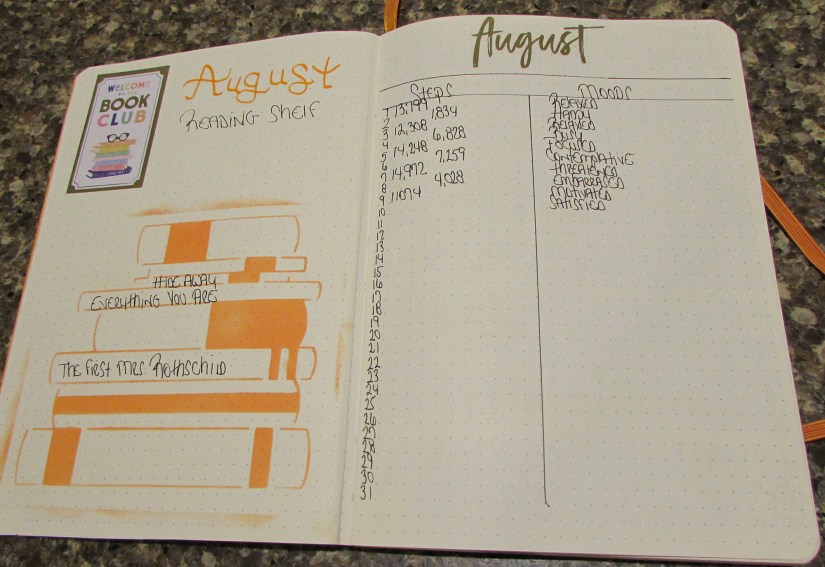 WELCOME
TO THE
BOOK
CLUB
August
READING SHELF
HIDEAWAY
EVERYTHING YOU ARE
The First Mrs. Rothschild
August
Steps Moods
1 13,799 RELAXED
2 1,834 HAPPY
3 12,308 RELAXED
4 6,828 BUSY
5 14,248 FOCUSED
6 7,259 CONTEMPLATIVE
7 14,972 THREATENED
8 4,028 EMBARRASSED
9 11074 MOTIVATED
10 SATISFIED
11
12
13
14
15
16
17
18
19
20
21
22
23
24
25
26
27
28
29
30
31